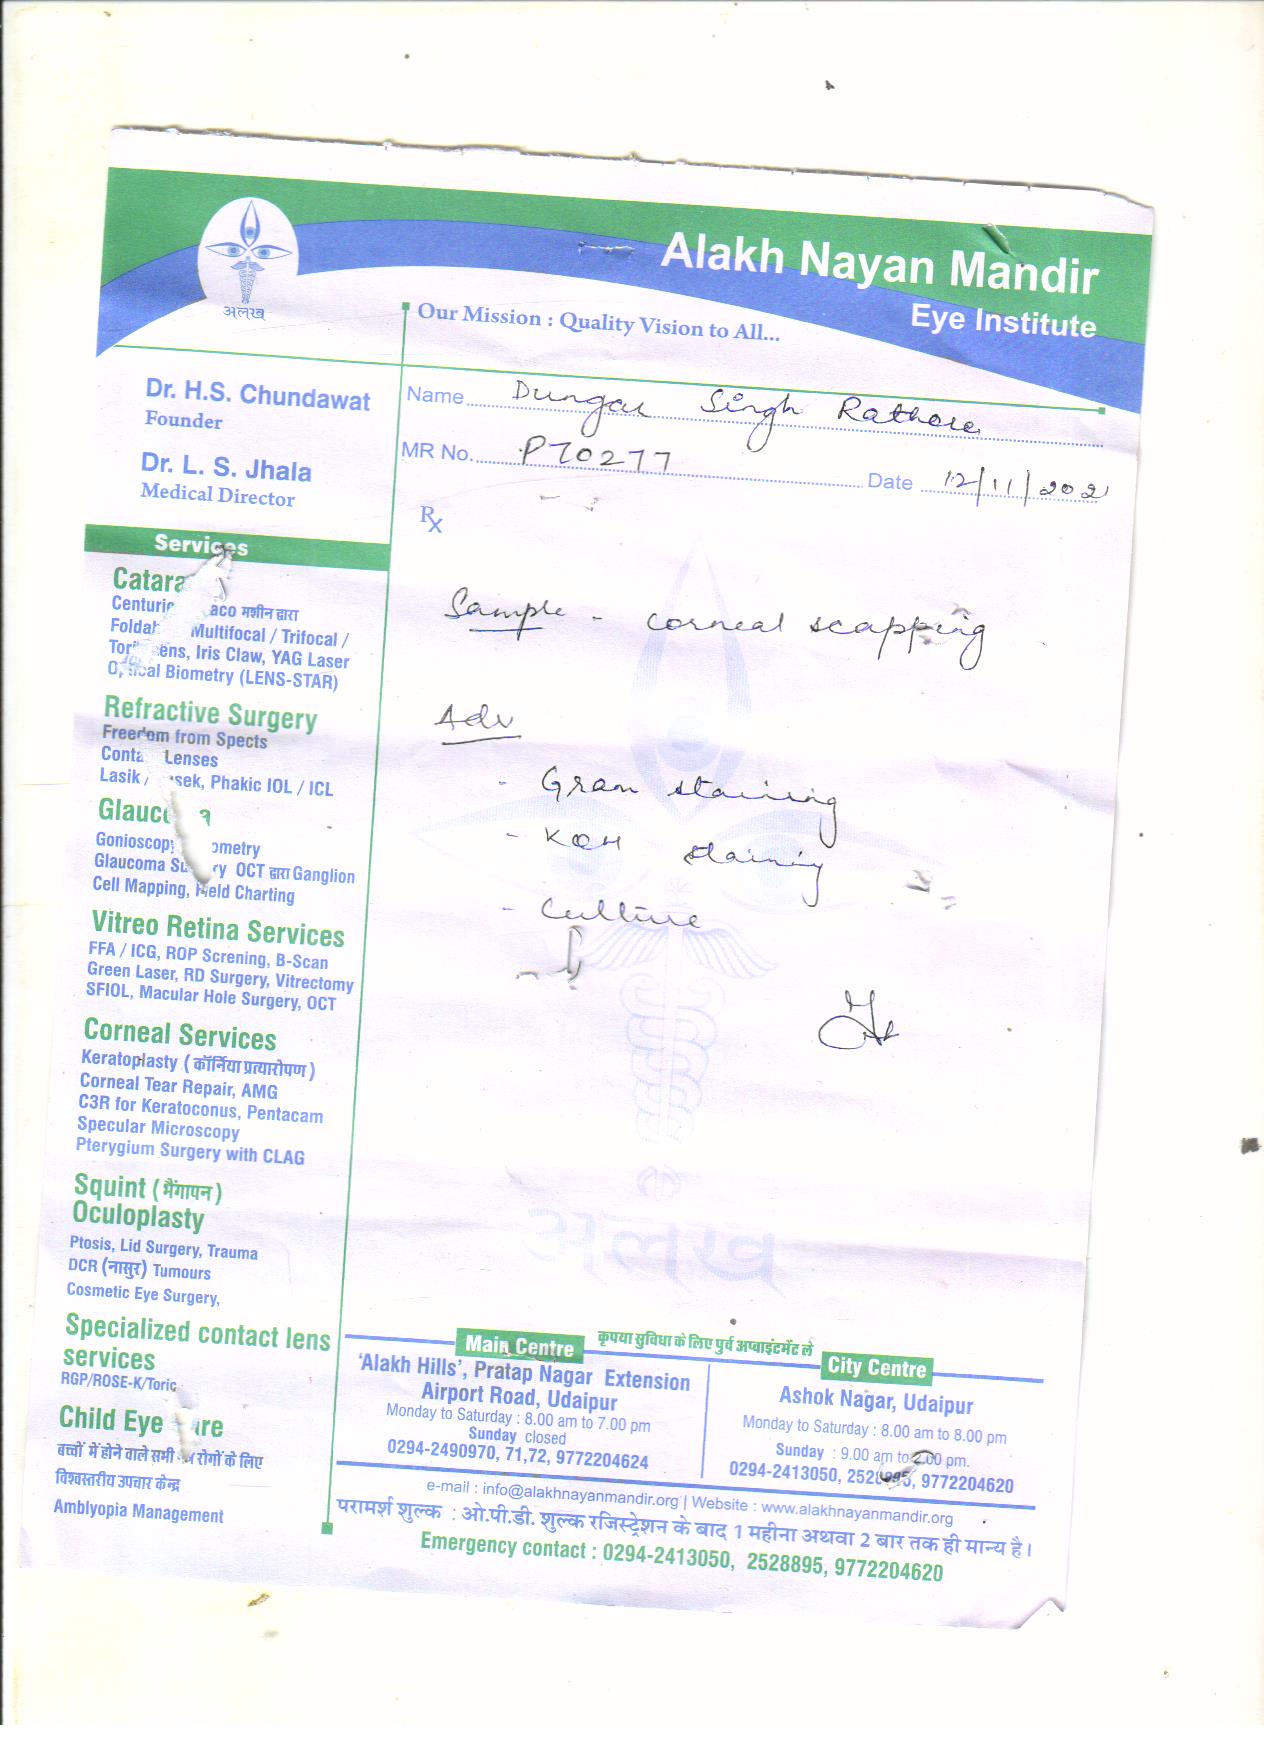 Alakh Nayan Mandir
Eye Institute
अलख
Our Mission : Quality Vision to All...
Dr. H.S. Chundawat
Founder
Dr. L. S. Jhala
Medical Director
Name Dungar Singh Rathore
MR No. P70277
Date 12/11/2021
Rx
Sample - corneal scapping
Adv
- Gram staining
- KOH staining
- Culture
Services
Catara
Centurio aco मशीन द्वारा
Foldab Multifocal / Trifocal /
Toric Lens, Iris Claw, YAG Laser
Optical Biometry (LENS-STAR)
Refractive Surgery
Freedom from Spects
Conta Lenses
Lasik / sek, Phakic IOL / ICL
Glauco a
Gonioscopy ometry
Glaucoma Su ry OCT द्वारा Ganglion
Cell Mapping, Field Charting
Vitreo Retina Services
FFA / ICG, ROP Screning, B-Scan
Green Laser, RD Surgery, Vitrectomy
SFIOL, Macular Hole Surgery, OCT
Corneal Services
Keratoplasty ( कॉर्निया प्रत्यारोपण )
Corneal Tear Repair, AMG
C3R for Keratoconus, Pentacam
Specular Microscopy
Pterygium Surgery with CLAG
Squint ( भैंगापन )
Oculoplasty
Ptosis, Lid Surgery, Trauma
DCR (नासुर) Tumours
Cosmetic Eye Surgery,
Specialized contact lens
services
RGP/ROSE-K/Toric
Child Eye are
बच्चों में होने वाले सभी रोगों के लिए
विश्वस्तरीय उपचार केन्द्र
Amblyopia Management
अलख
कृपया सुविधा के लिए पुर्व अप्वाइंटमेंट ले
Main Centre
'Alakh Hills', Pratap Nagar Extension
Airport Road, Udaipur
Monday to Saturday : 8.00 am to 7.00 pm
Sunday closed
0294-2490970, 71,72, 9772204624
City Centre
Ashok Nagar, Udaipur
Monday to Saturday : 8.00 am to 8.00 pm
Sunday : 9.00 am to 2.00 pm.
0294-2413050, 2528895, 9772204620
e-mail : info@alakhnayanmandir.org | Website : www.alakhnayanmandir.org
परामर्श शुल्क : ओ.पी.डी. शुल्क रजिस्ट्रेशन के बाद 1 महीना अथवा 2 बार तक ही मान्य है।
Emergency contact : 0294-2413050, 2528895, 9772204620